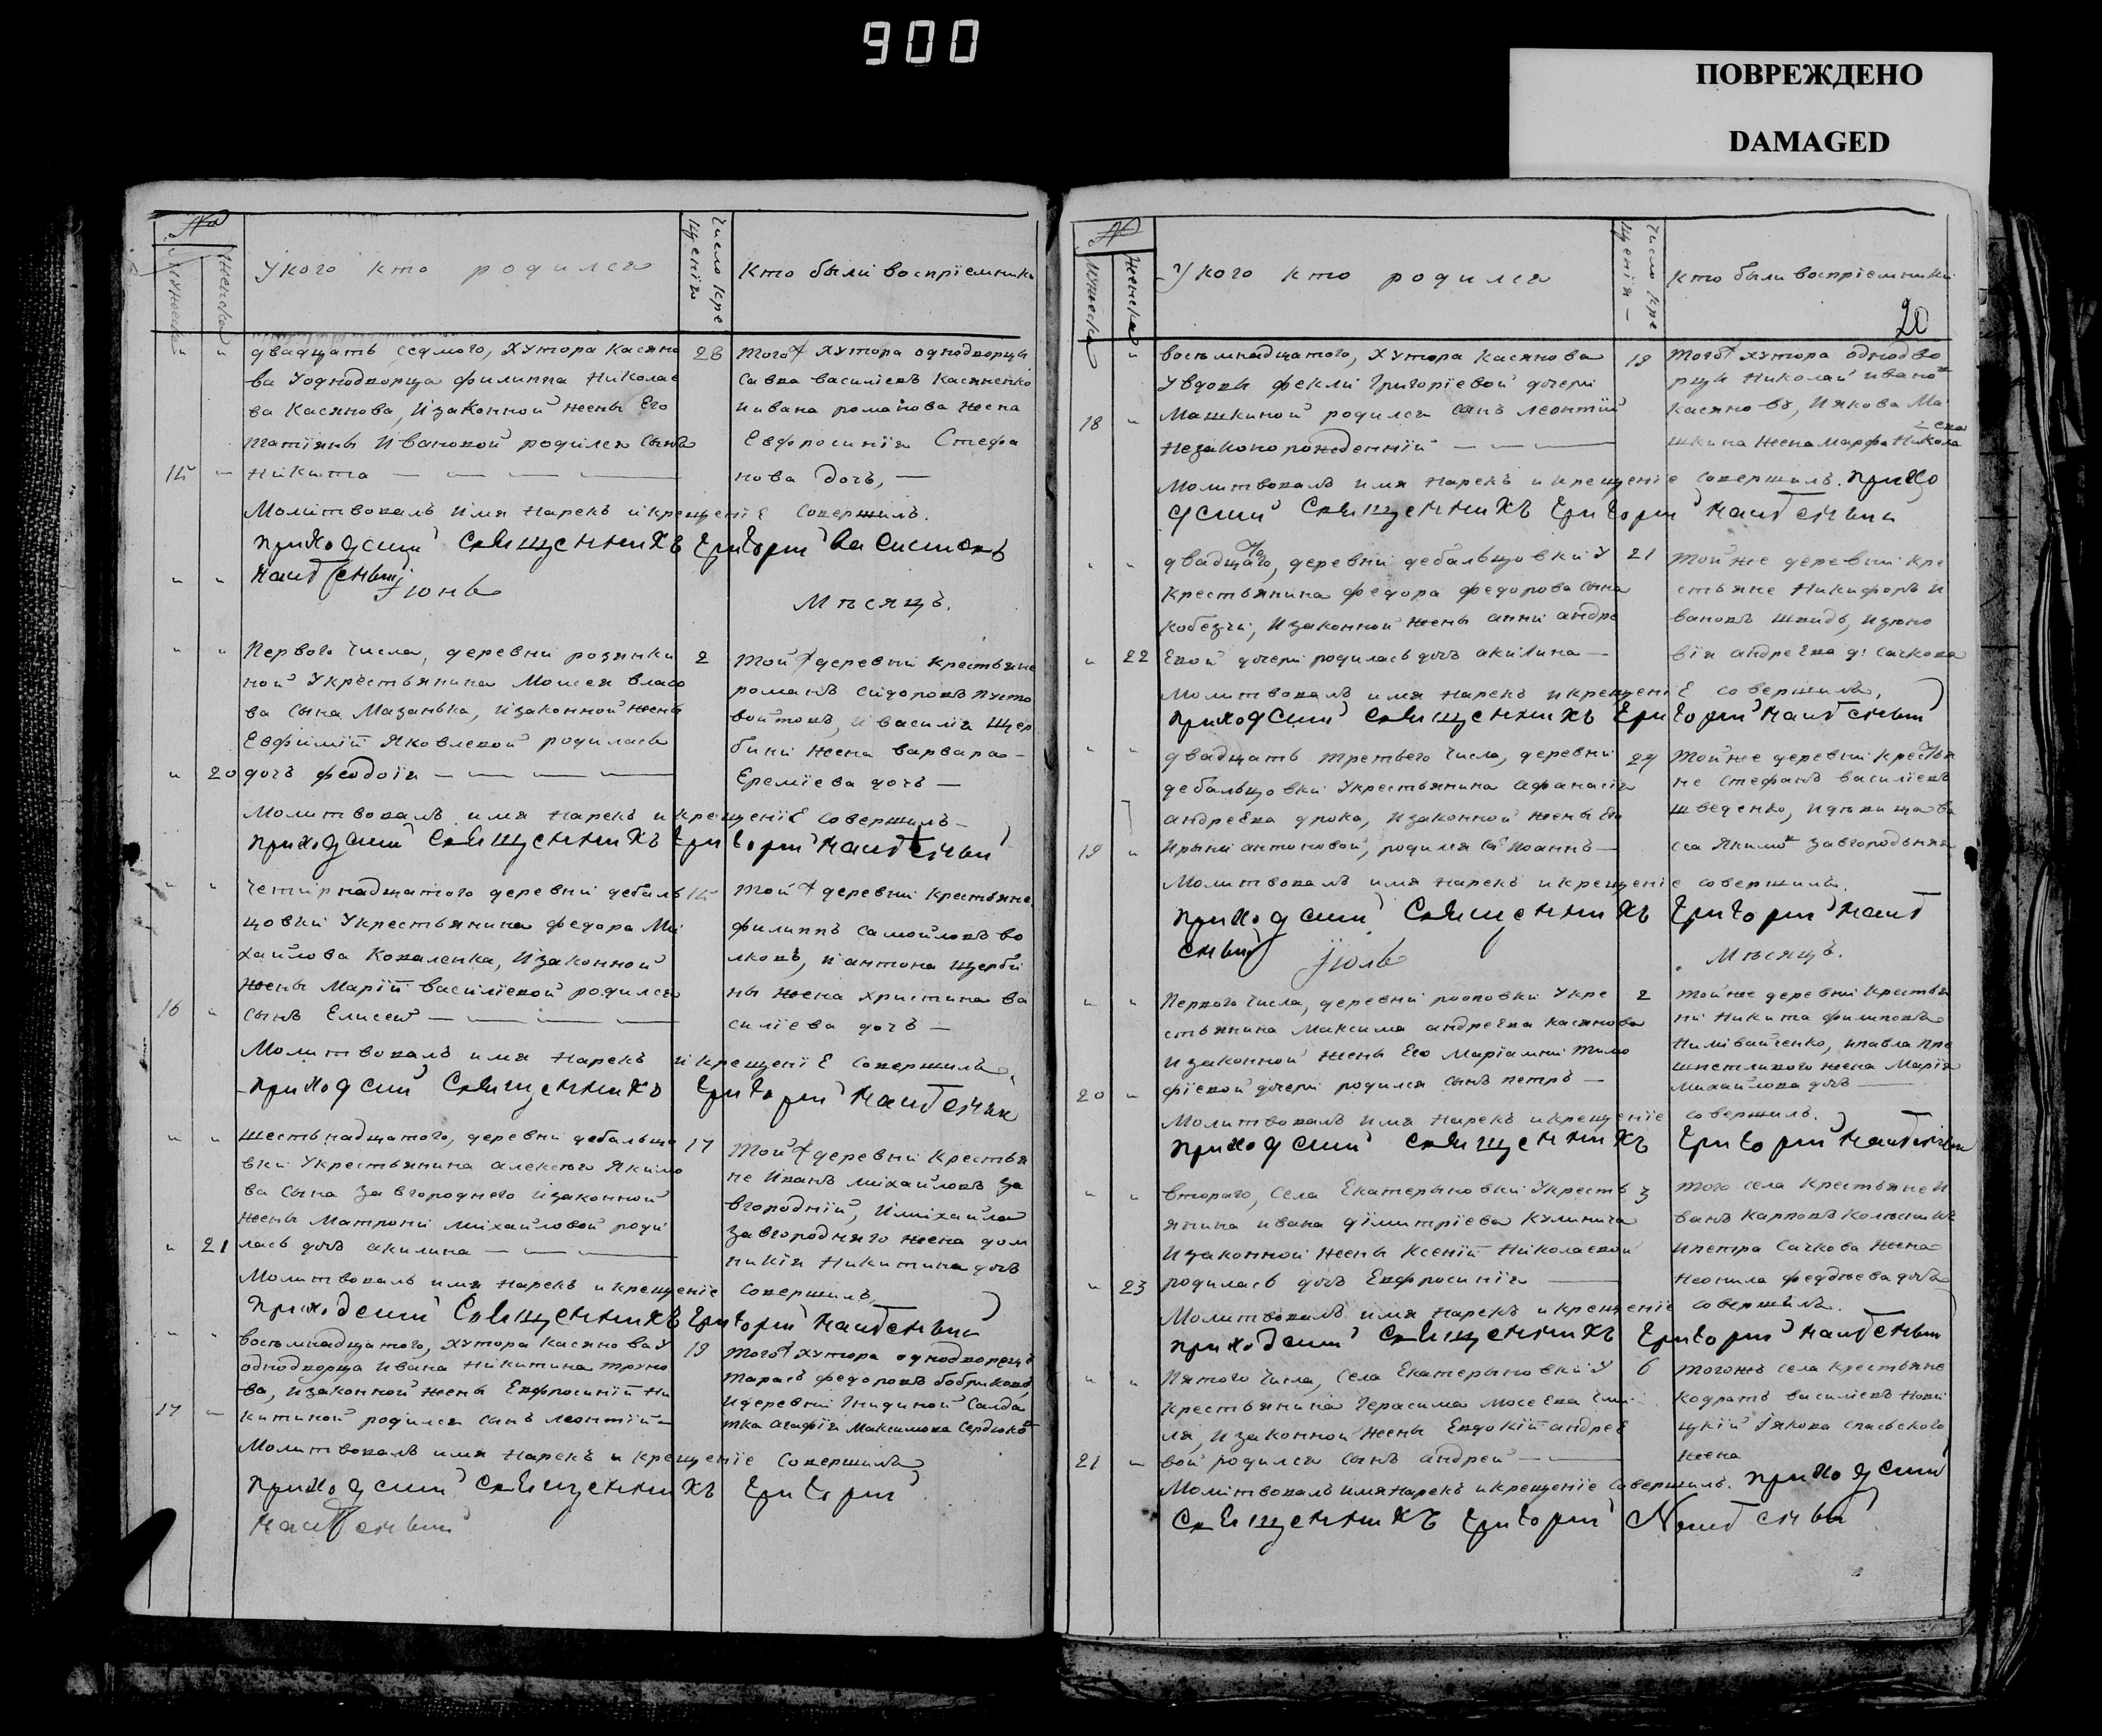 900
ПОВРЕЖДЕНО
DAMAGED
№
Мужеска
Женска
У кого кто родился
Число кре
щенія
Кто были воспріемники
" " двадцать седмого, хутора Касяно
ва У однодворца филиппа Николае
ва Касянова, И законной жены Его
татіяны Ивановой родился сынъ
15 – Никита
28
того ж хутора однодворцы
Савва василіевъ Касяненко
и ивана романова жена
Евфросинія Стефа
нова дочь,
Молитвовалъ Имя нарекъ и крещеніе совершилъ.
приходскій Священникъ григорій
" "
Іюнь
Мѣсяцъ.
" " Первого числа, деревни
ной У крестьянина Моисея власо
ва сына Мазанька, И законной жены
Евфиміи Яковлевой родилась
" 20 дочь феодосія
2
той ж деревни крестьяне
романъ сидоровъ пусто
войтовъ, и василія щер
бини жена варвара
Еремѣева дочь
Молитвовалъ имя нарекъ и крещеніе совершилъ
приходскій Священникъ григорій
" " четирнадцатого деревни дебаль
цовки У крестьянина федора Ми
хайлова Коваленка, И законной
жены Маріи василіевой родился
16 " сынъ Елисей
15
той ж деревни крестьяне
филиппъ самойловъ во
лковъ, и антона щерби
ны жена христина ва
силіева дочь
Молитвовалъ имя нарекъ и крещеніе совершилъ
приходскій Священникъ григорій
" " шестьнадцатого, деревни дебальцо
вки У крестьянина алексѣя Якимо
ва сына завгороднего И законной
жены Матрони михайловой роди
" 21 лась дочь акилина
17
той ж деревни крестья
не Иванъ михайловъ за
вгородній, И михайла
завгородняго жена дом
никія Никитина дочь
Молитвовалъ имя нарекъ и крещеніе совершилъ
приходскій Священникъ григорій
" " восьмнадцатого, хутора касянова У
однодворца Ивана Никитина
ва, И законной жены Евфросиніи Ни
17 – китиной родился сынъ леонтій
19
того ж хутора однодворецъ
тарасъ федоровъ бобриковъ,
И деревни Гнидиной солда
тка агафія Максимова
Молитвовалъ имя нарекъ и крещеніе совершилъ
приходскій Священникъ григорій
№
Мужеска
Женска
У кого кто родился
Число кре
щенія
Кто были воспріемники
20
" восьмнадцатого, хутора касянова
У вдовы фекли григоріевой дочери
18 " Машкиной родился сынъ леонтій
незаконорожденній
19
того ж хутора однодво
рцы Николай ивано
касяновъ, И якова Ма
шкина жена марфа Никола
Молитвовалъ имя нарекъ и крещеніе совершилъ. прихо
дскій Священникъ григорій
" " двадцатого, деревни дебальцовки У
крестьянина федора федорова сына
И законной жены анни андре
" 22 Евой дочери родилась дочь акилина
21
той же деревни кре
стьяне Никифоръ И
вановъ
вія андреева
Молитвовалъ имя нарекъ и крещеніе совершилъ,
приходскій Священникъ григорій
" " двадцать третьего числа, деревни
дебальцовки У крестьянина афанасія
андреева дрока, И законной жены
19 " Ирыни антоновой, родился Іоаннъ
24
той же деревни кресть
не стефанъ василіевъ
шведенко,
Молитвовалъ имя нарекъ и крещеніе совершилъ.
приходскій Священникъ григорій
Іюль
Мѣсяцъ.
" " Первого числа, деревни У кре
стьянина Максима андреева касянова
И законной жены Его Маріамни тимо
20 " фіевой дочери родился сынъ петръ
2
той же деревни крестья
ни Никита филиповъ
и павла
жена Марія
Михайлова дочь
Молитвовалъ имя нарекъ и крещеніе совершилъ.
приходскій Священникъ григорій
" " второго, села Екатерыновки У кресть
янина ивана дімитріева
И законной жены Ксеніи Николаевой
" 23 родилась дочь Евфросинія
3
того села крестьяне И
ванъ Карповъ
и петра сачкова жена
неонила федоѣева дочь
Молитвовалъ имя нарекъ и крещеніе совершилъ.
приходскій Священникъ григорій
" " Пятого числа, села Екатерыновки У
крестьянина Герасима Мосеева
ля, И законной жены Евдокіи андрее
21 " вой родился сынъ андрей
6
того жъ села крестьяне
кодратъ василіевъ Нови
цкій И якова спасьского
жена
Молитвовалъ имя нарекъ и крещеніе совершилъ. приходскій
Священникъ григорій